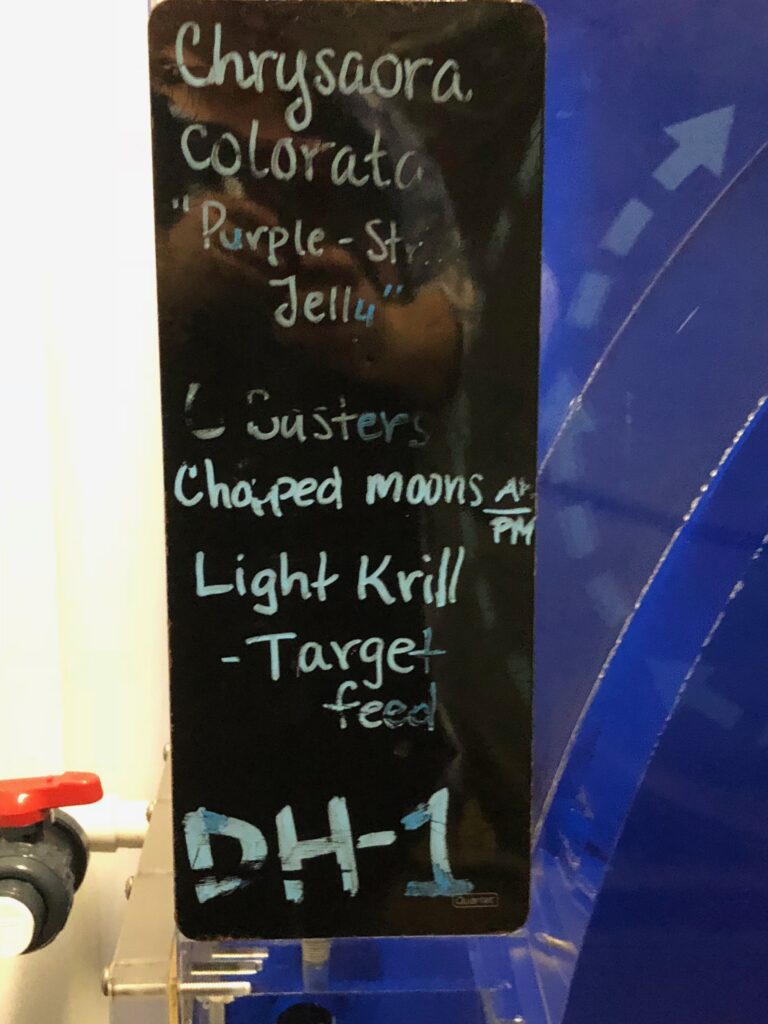 Chrysaora
colorata
"Purple-Str
Jelly"
6 Basters
Chopped moons AM
PM
Light Krill
- Target
feed
DH-1
Quartet